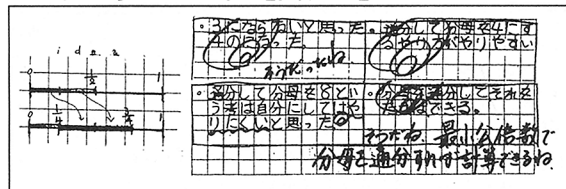 idea
0 1/2 1
0 1/4 3/4 1
・3にならないと思った
4のになった。
そうだったね
・通分して分母を4にす
るやり方がやりやすい
・通分して分母を8とい
う考は自分にしてはや
りにくいと思った。
・分母を通分してそれを
たせばできる。
そうだね。最小公倍数で
分母を通分すれば計算できるね。